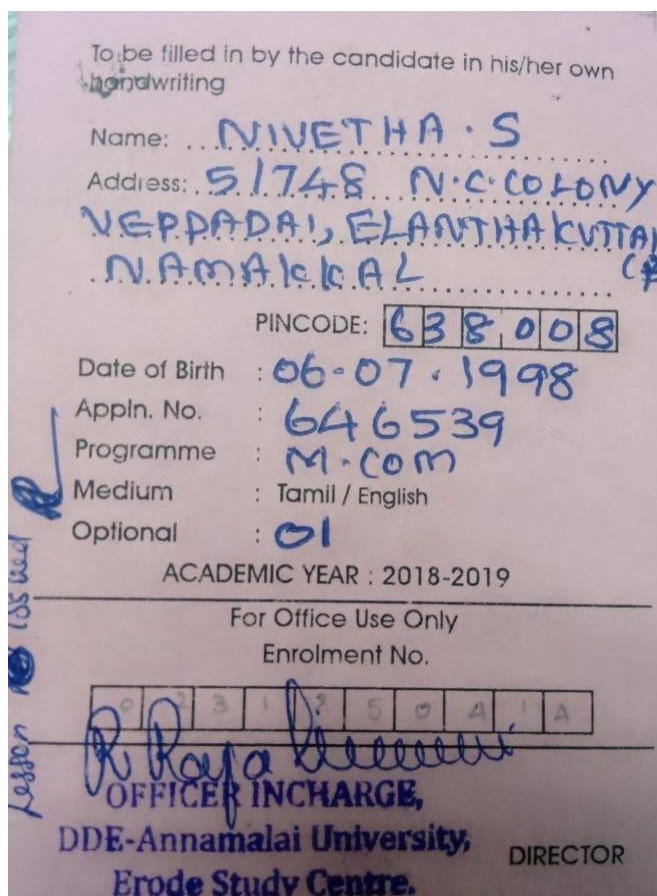 To be filled in by the candidate in his/her own
handwriting
Name: NIVETHA . S
Address: 5/748 N.C.COLONY
VEPPADAI, ELANTHAKUTTAI
NAMAKKAL
PINCODE: 638008
Date of Birth : 06-07.1998
Appln. No. : 646539
Programme : M.COM
Medium : Tamil / English
Optional : 01
ACADEMIC YEAR : 2018-2019
For Office Use Only
Enrolment No.
0231250414
R Raja
OFFICER INCHARGE,
DDE-Annamalai University,
DIRECTOR
Erode Study Centre.
Lesson issued